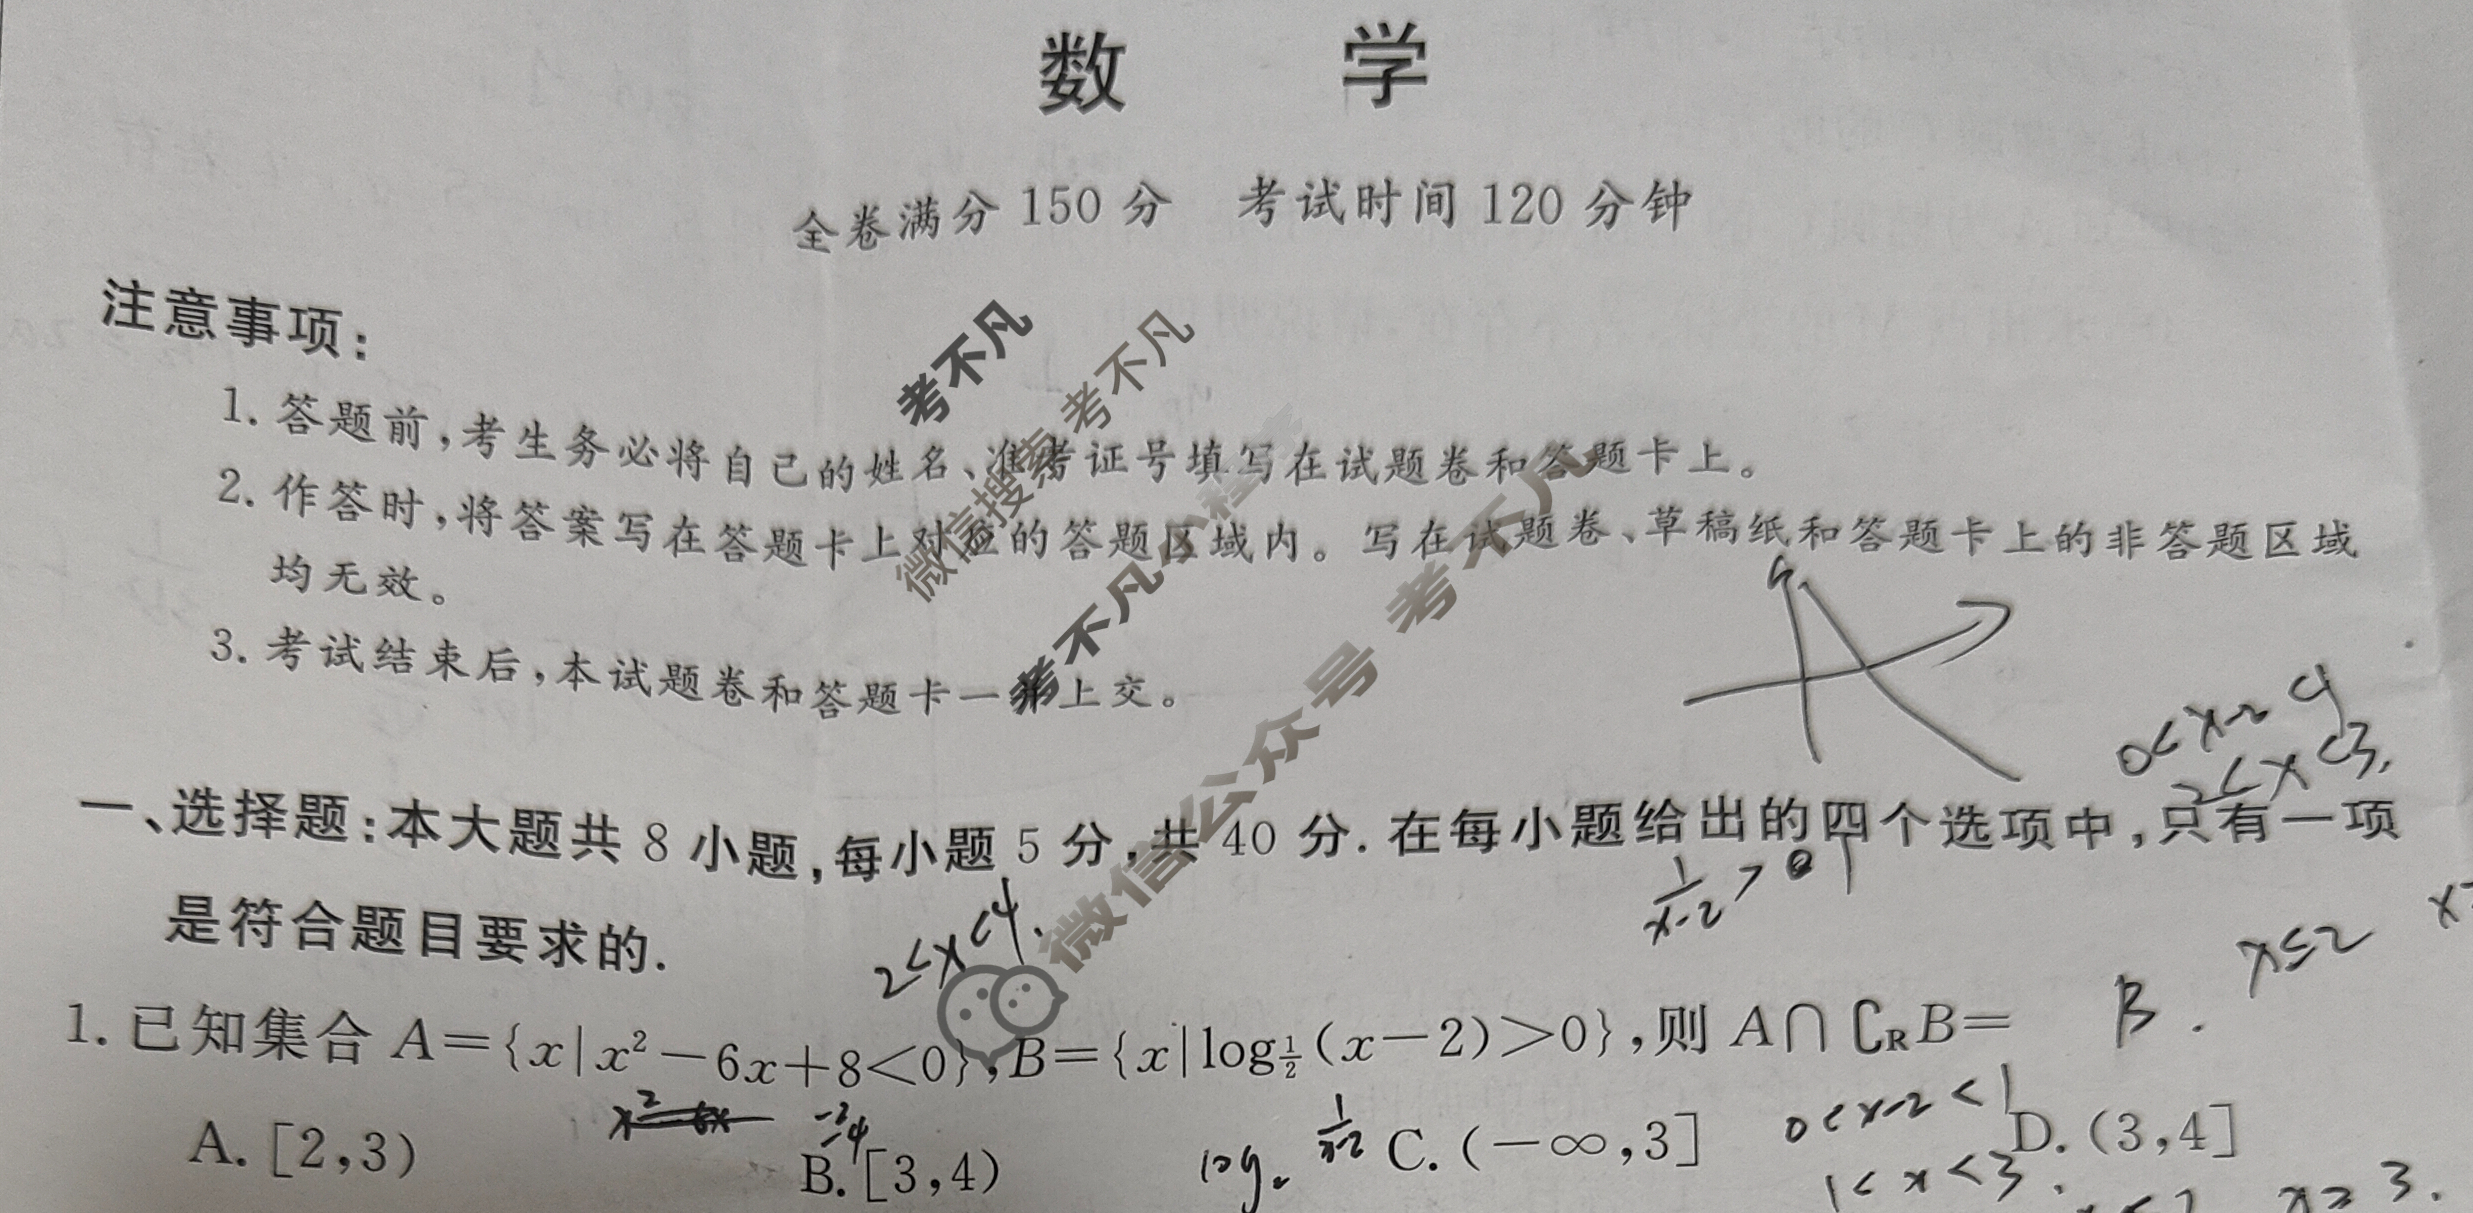 数 学
全卷满分 150 分 考试时间 120 分钟
注意事项:
1. 答题前,考生务必将自己的姓名、准考证号填写在试题卷和答题卡上。
2. 作答时,将答案写在答题卡上对应的答题区域内。写在试题卷、草稿纸和答题卡上的非答题区域
均无效。
3. 考试结束后,本试题卷和答题卡一并上交。
考不凡
微信搜索 考不凡
考不凡小程序
微信公众号 考不凡
0<x-2
2<x<3,
一、选择题:本大题共 8 小题,每小题 5 分,共 40 分. 在每小题给出的四个选项中,只有一项
是符合题目要求的.
2<x<4.
1/(x-2) >
x≤2
1. 已知集合 A={x|x²-6x+8<0},B={x|log½(x-2)>0},则 A∩∁RB= B.
-2
-4
log 1/(x-2)
0<x-2<1
A. [2,3) B. [3,4) C. (-∞,3] D. (3,4]
1<x<3.
x≥3.